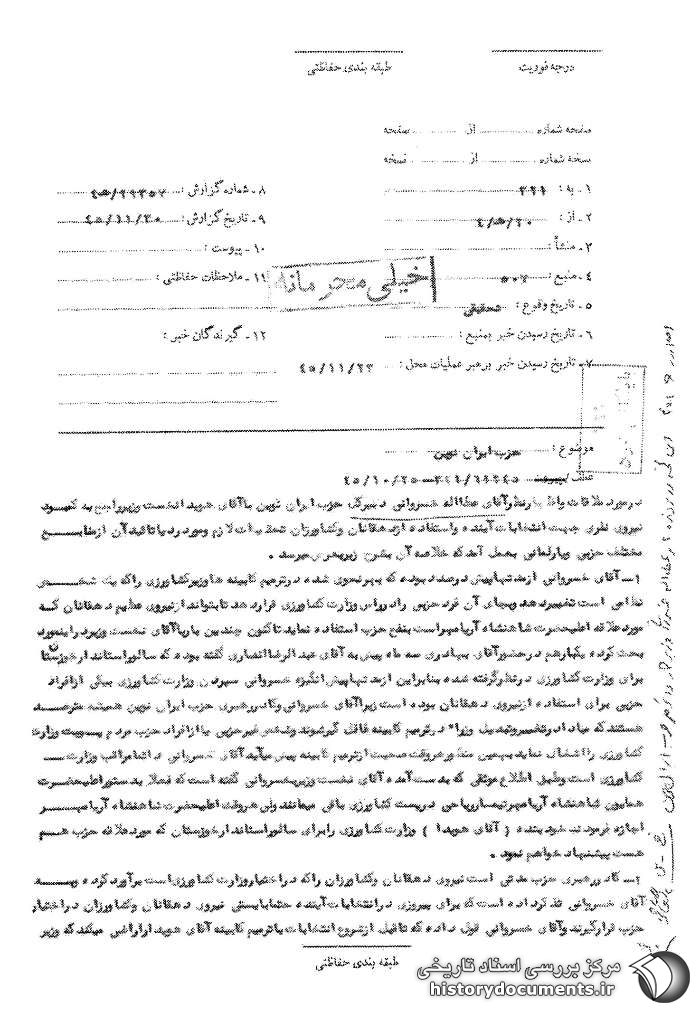 درجه فوریت
طبقه بندی حفاظتی
صفحه شماره از صفحه
نسخه شماره از نسخه
۱ـ به : ۳۲۱
۲ـ از : ۲۰/ﻫ/۴
۳ـ منشأ :
۴ـ منبع : ۵۰۷
۵ـ تاریخ وقوع : تحقیقی
۶ـ تاریخ رسیدن خبر بمنبع :
۷ـ تاریخ رسیدن خبر برهبر عملیات محل : ۴۵/۱۱/۲۳
۸ـ شماره گزارش :
۹ـ تاریخ گزارش : ۴۵/۱۱/۳۰
۱۰ـ پیوست :
۱۱ـ ملاحظات حفاظتی :
۱۲ـ گیرندگان خبر :
خیلی محرمانه
موضوع : حزب ایران نوین
عطف
در مورد ملاقات و اظهارنظر آقای عطااله خسروانی دبیرکل حزب ایران نوین با آقای هویدا نخست وزیر راجع به کمبود
نیروی نفری جهت انتخابات آینده و استفاده از دهقانان و کشاورزان تحقیقات لازم و مورد رد یا تائید آن از منابع
مختلف حزبی و پارلمانی بعمل آمد که خلاصه آن بشرح زیر بعرض میرسد .
۱ـ آقای خسروانی از مدتها پیش درصدد بوده که بهر نحوی شده در ترمیم کابینه ها وزیر کشاورزی را که یک شخص
نظامی است تغییر دهد و بجای آن فرد حزبی را در راس وزارت کشاورزی قرار دهد تا بتواند از نیروی عظیم دهقانان که
مورد علاقه اعلیحضرت شاهنشاه آریامهر است بنفع حزب استفاده نماید تاکنون چندین بار با آقای نخست وزیر در اینمورد
بحث کرده یکبار هم در حضور آقای بهادری سه ماه پیش به آقای عبدالرضا انصاری گفته بوده که سالور استاندار خوزستان
برای وزارت کشاورزی در نظر گرفته شده بنابراین از مدتها پیش انگیزه خسروانی سپردن وزارت کشاورزی بیکی از افراد
حزبی برای استفاده از نیروی دهقانان بوده است زیرا آقای خسروانی و کادر رهبری حزب ایران نوین همیشه مترصد
هستند که مبادا در تغییر و تبدیل وزراء و در ترمیم کابینه غافل گیر شوند و شخص غیر حزبی یا از افراد حزب مردم پست وزارت
کشاورزی را اشغال نماید بهمین منظور هر وقت صحبت از ترمیم کابینه پیش میآید آقای خسروانی در تلاش وزارت
کشاورزی است و طبق اطلاع موثقی که بدست آمده آقای نخست وزیر بخسروانی گفته است که فعلا بدستور اعلیحضرت
همایون شاهنشاه آریامهر تیمسار ریاحی در پست کشاورزی باقی میمانند ولی هر وقت اعلیحضرت شاهنشاه آریامهر
اجازه فرمودند خود بنده ( آقای هویدا ) وزارت کشاورزی را برای سالور استاندار خوزستان که مورد علاقه حزب هم
هست پیشنهاد خواهم نمود .
۲ـ کادر رهبری حزب مدتی است نیروی دهقانان و کشاورزان را که در اختیار وزارت کشاورزی است برآورد کرده و به
آقای خسروانی تذکر داده است که برای پیروزی در انتخابات آینده حتما بایستی نیروی دهقانان و کشاورزان در اختیار
حزب قرار گیرند و آقای خسروانی قول داده که تا قبل از شروع انتخابات یا ترمیم کابینه آقای هویدا را راضی میکند که وزیر
طبقه بندی حفاظتی
مرکز بررسی اسناد تاریخی
historydocuments.ir